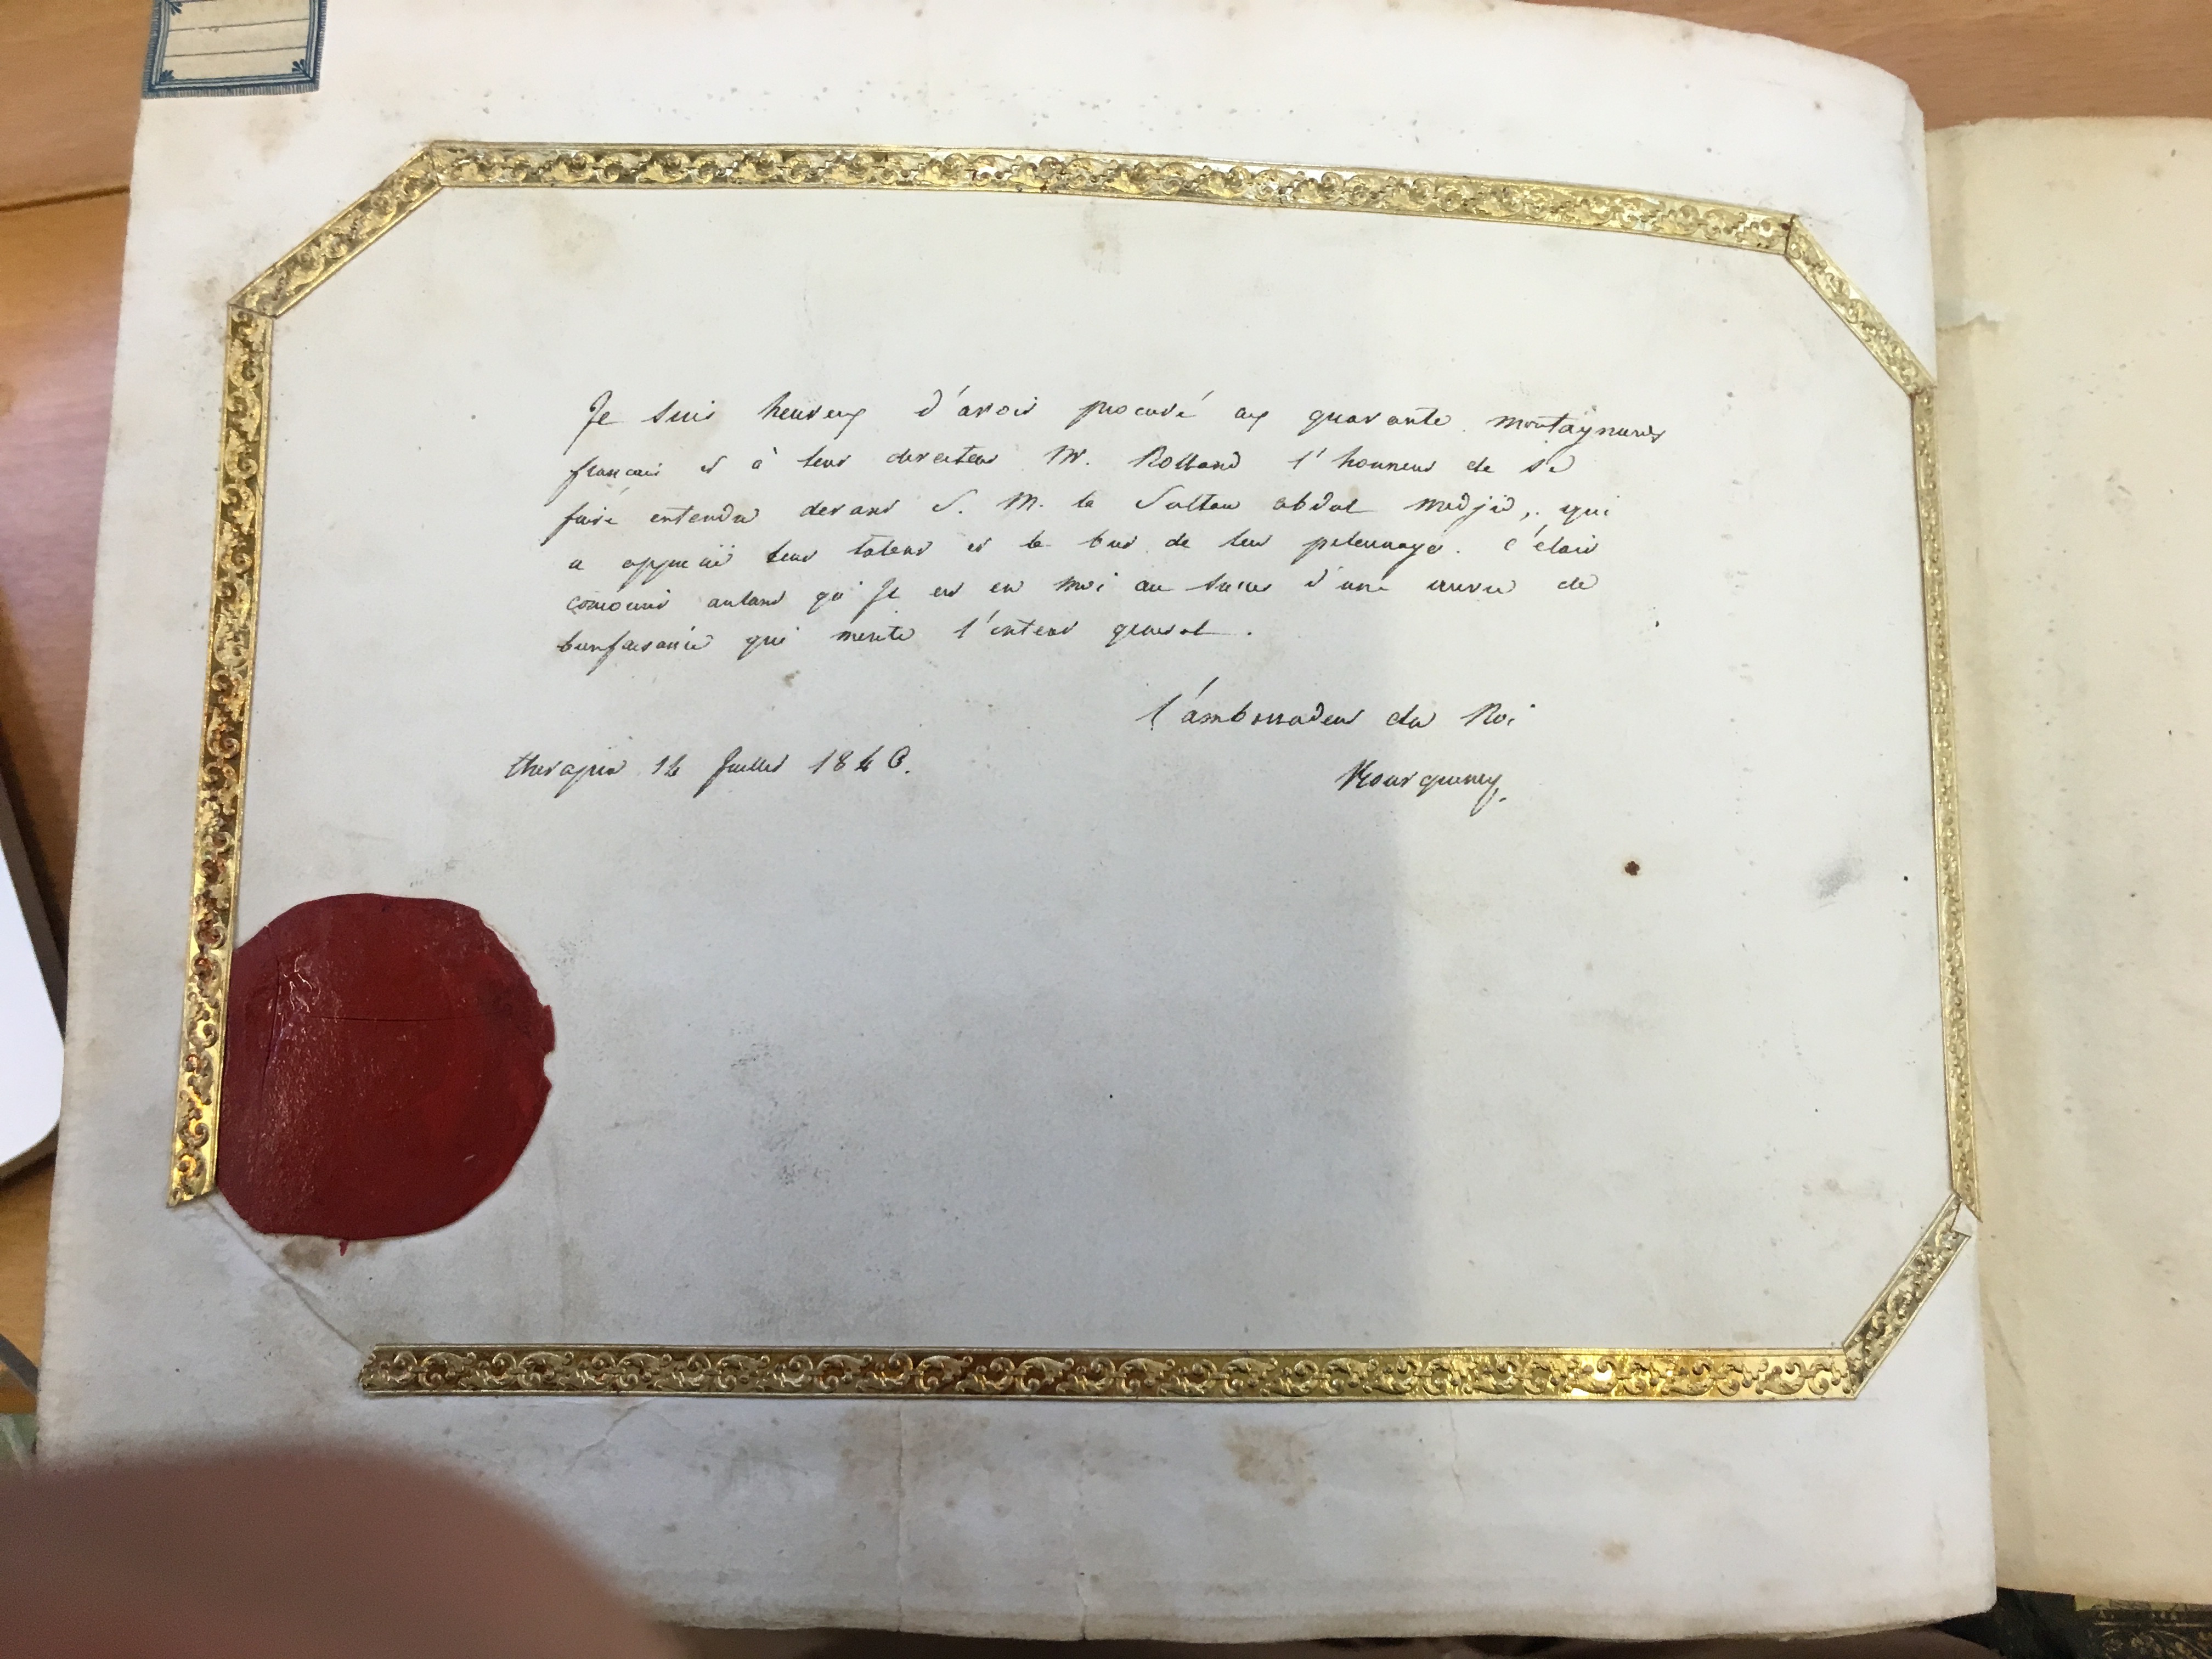 Je suis heureux d'avoir procuré aux quarante montagnards
français et à leur directeur Mr. Rolland l'honneur de se
faire entendre devant S. M. le Sultan abdul medjid, qui
a apprécié leur talent et le but de leur pelerinage. c'était
concourir autant qu'il est en moi au succès d'une œuvre de
bienfaisance qui merite l'interet general.
l'ambassadeur du Roi
therapia 14 Juillet 1846.
Bourqueney